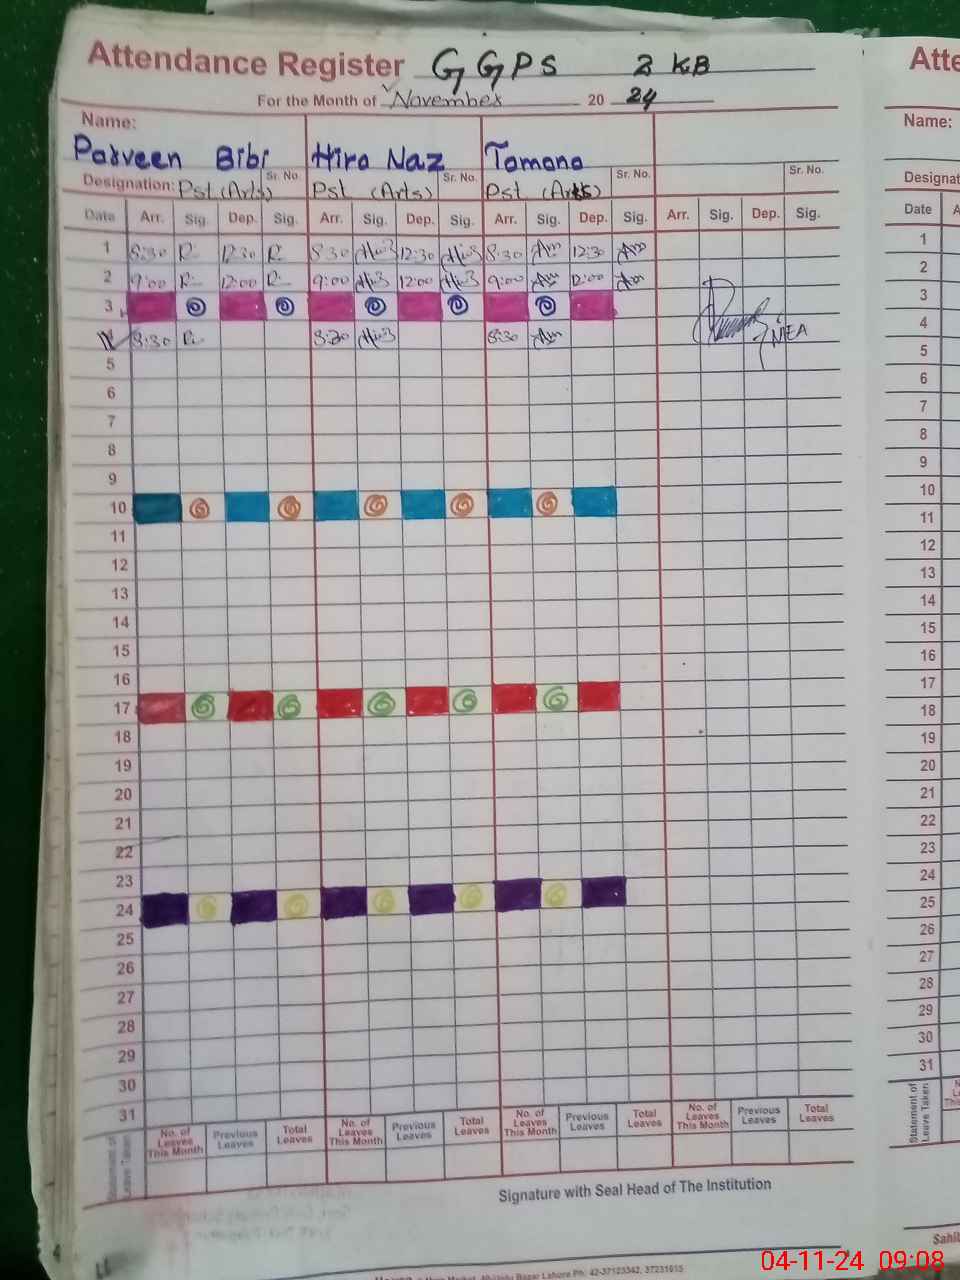 Attendance Register GGPS 2 KB
For the Month of November 20 24
Name:
Parveen Bibi Hira Naz Tamana
Designation: Pst (Arts) Sr. No. Pst (Arts) Sr. No. Pst (Arts) Sr. No. Sr. No.
Date Arr. Sig. Dep. Sig. Arr. Sig. Dep. Sig. Arr. Sig. Dep. Sig. Arr. Sig. Dep. Sig.
1 8:30 12:30 8:30 12:30 8:30 12:30
2 9:00 12:00 9:00 12:00 9:00 12:00
3
8:30 8:30 8:30 MEA
5
6
7
8
9
10
11
12
13
14
15
16
17
18
19
20
21
22
23
24
25
26
27
28
29
30
31
Statement of Leave Taken No. of Leaves This Month Previous Leaves Total Leaves No. of Leaves This Month Previous Leaves Total Leaves No. of Leaves This Month Previous Leaves Total Leaves No. of Leaves This Month Previous Leaves Total Leaves
Signature with Seal Head of The Institution
Urdu Bazar Lahore Ph: 42-37123342, 37231615
Atte
Name:
Designat
Date A
1
2
3
4
5
6
7
8
9
10
11
12
13
14
15
16
17
18
19
20
21
22
23
24
25
26
27
28
29
30
31
Statement of Leave Taken
Sahil
04-11-24 09:08